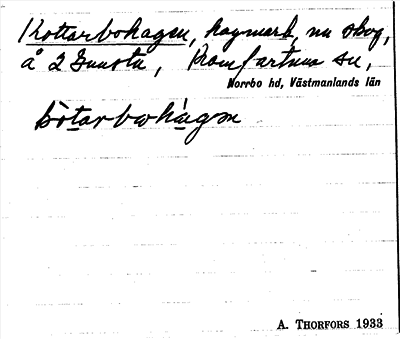 Kottarbohagen, hagmark, nu skog,
å 2 Gunsta, Romfartuna sn,
Norrbo hd, Västmanlands län
A. THORFORS 1933